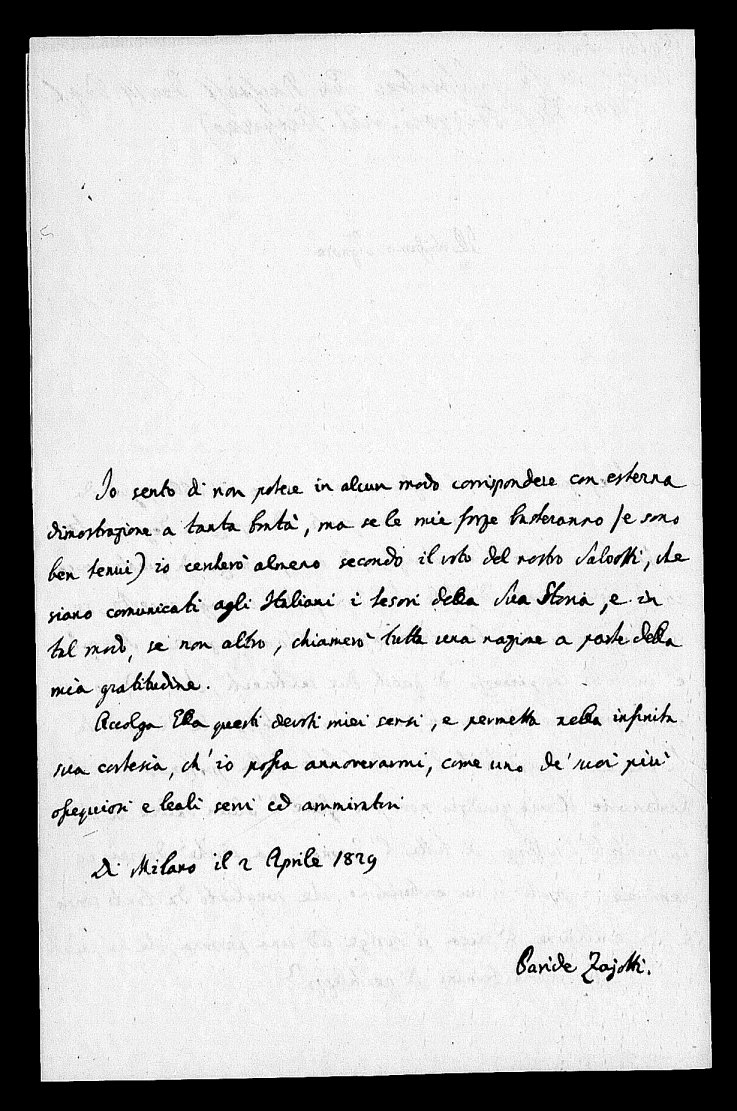 Io sento di non potere in alcun modo corrispondere con esterna
dimostrazione a tanta bontà, ma se le mie forze basteranno /e sono
ben tenui) io tenterò almeno secondo il voto del nostro Salvotti, che
siano comunicati agli Italiani i tesori della Sua Storia, e in
tal modo, se non altro, chiamerò tutta una nazione a parte della
mia gratitudine.
Accolga Ella questi devoti miei sensi, e permetta nella infinita
sua cortesia, ch'io possa annoverarmi, come uno de' suoi più
ossequiosi e leali servi ed ammiratori
Di Milano il 2 Aprile 1829
Paride Zajotti.